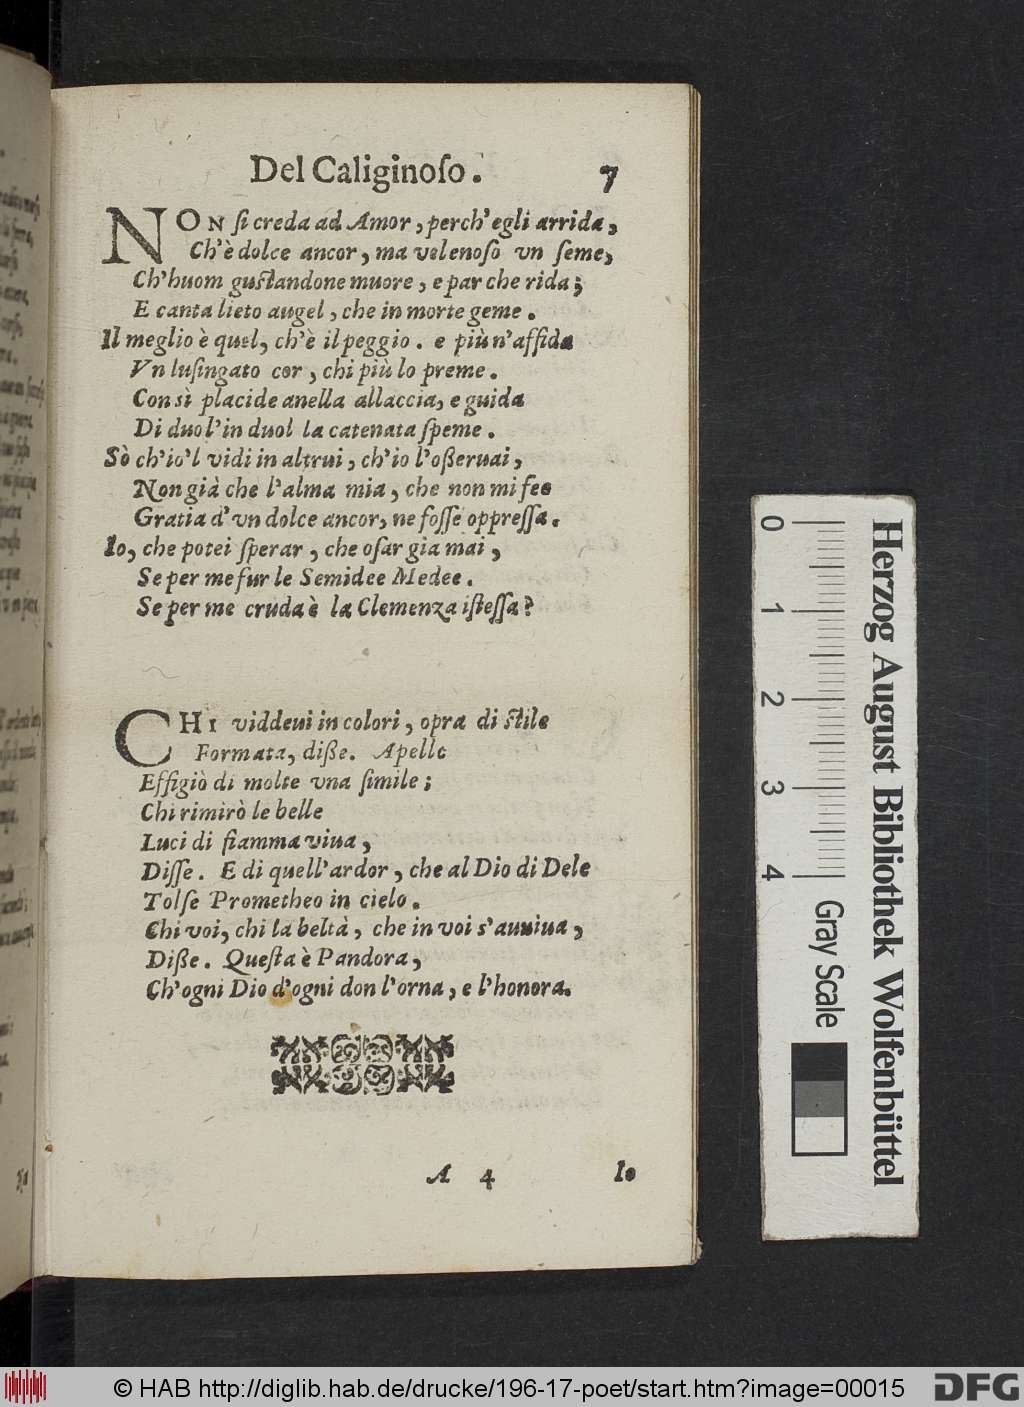 Del Caliginoſo. 7
NON ſi creda ad Amor, perch' egli arrida,
Ch'è dolce ancor, ma velenoſo vn ſeme,
Ch'huom guſtandone muore, e par che rida;
E canta lieto augel, che in morte geme.
Il meglio è quel, ch'è il peggio. e più n'affida
Vn luſingato cor, chi più lo preme.
Con sì placide anella allaccia, e guida
Di duol' in duol la catenata ſpeme.
Sò ch'io'l vidi in altrui, ch'io l'oßeruai,
Non già che l'alma mia, che non mi feo
Gratia d'vn dolce ancor, ne foſſe oppreſſa.
Io, che potei ſperar, che oſar gia mai,
Se per me fur le Semidee Medee.
Se per me cruda è la Clemenza iſteſſa?
CHI viddeui in colori, opra di ſtile
Formata, diße. Apelle
Effigiò di molte vna ſimile;
Chi rimirò le belle
Luci di fiamma viua,
Diſſe. E di quell'ardor, che al Dio di Dele
Tolſe Prometheo in cielo.
Chi voi, chi la beltà, che in voi s'auuiua,
Diße. Queſta è Pandora,
Ch'ogni Dio d'ogni don l'orna, e l'honora.
A 4 Io
0 1 2 3 4
Gray Scale
Herzog August Bibliothek Wolfenbüttel
© HAB http://diglib.hab.de/drucke/196-17-poet/start.htm?image=00015
DFG